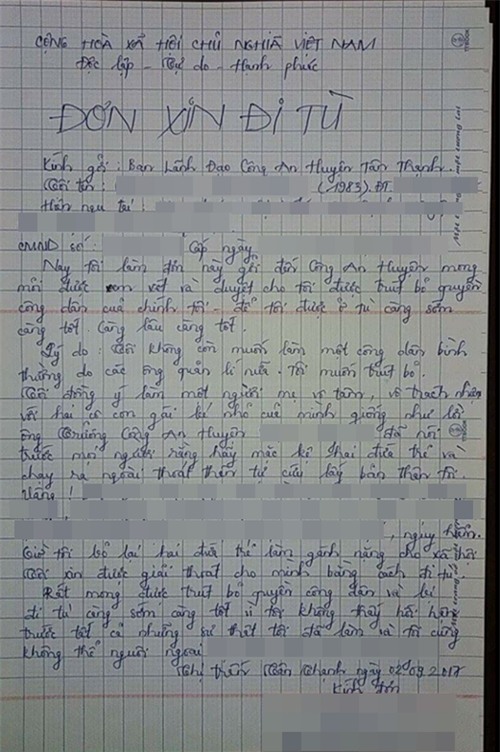 CỘNG HÒA XÃ HỘI CHỦ NGHĨA VIỆT NAM
Độc lập - Tự do - Hạnh phúc
ĐƠN XIN ĐI TÙ
Kính gởi: Ban Lãnh Đạo Công An Huyện Tân Thạnh.
Tôi tên: (-1983). ĐT.
Hiện ngụ tại:
CMND số: Cấp ngày
Nay tôi làm đơn này gởi đến Công An Huyện mong
mỏi được xem xét và duyệt cho tôi được trút bỏ quyền
công dân của chính tôi - để tôi được ở tù càng sớm
càng tốt. Càng lâu càng tốt.
Lý do: Tôi không còn muốn làm một công dân bình
thường do các ông quản lí nữa. Tôi muốn trút bỏ.
Tôi đồng ý làm một người mẹ vô tâm, vô trách nhiệm
với hai cô con gái bé nhỏ của mình giống như lời
ông Trưởng Công An Huyện đã nói
trước mọi người rằng hãy mặc kệ hai đứa trẻ và
chạy ra ngoài thoát thân tự cứu lấy bản thân tôi.
Vâng!
, nguy hiểm.
Giờ tôi bỏ lại hai đứa trẻ làm gánh nặng cho xã hội
Tôi xin được giải thoát cho mình bằng cách đi tù.
Rất mong được trút bỏ quyền công dân và
đi tù càng sớm càng tốt vì tôi không thấy hối hận
trước tất cả những sự thật tôi đã làm và tôi cũng
không thể nguôi ngoai
Thị trấn Tân Thạnh ngày 02.09.2017
Kính đơn